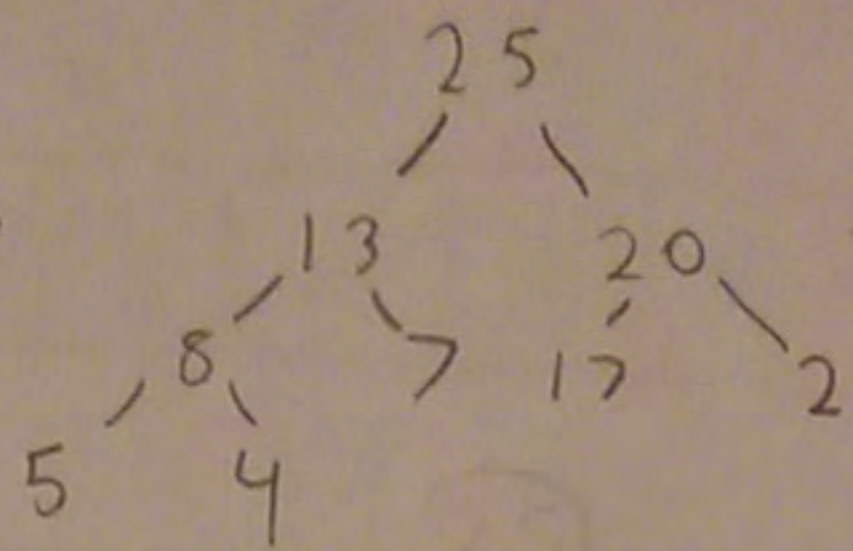 25
13 20
8 7 17 2
5 4